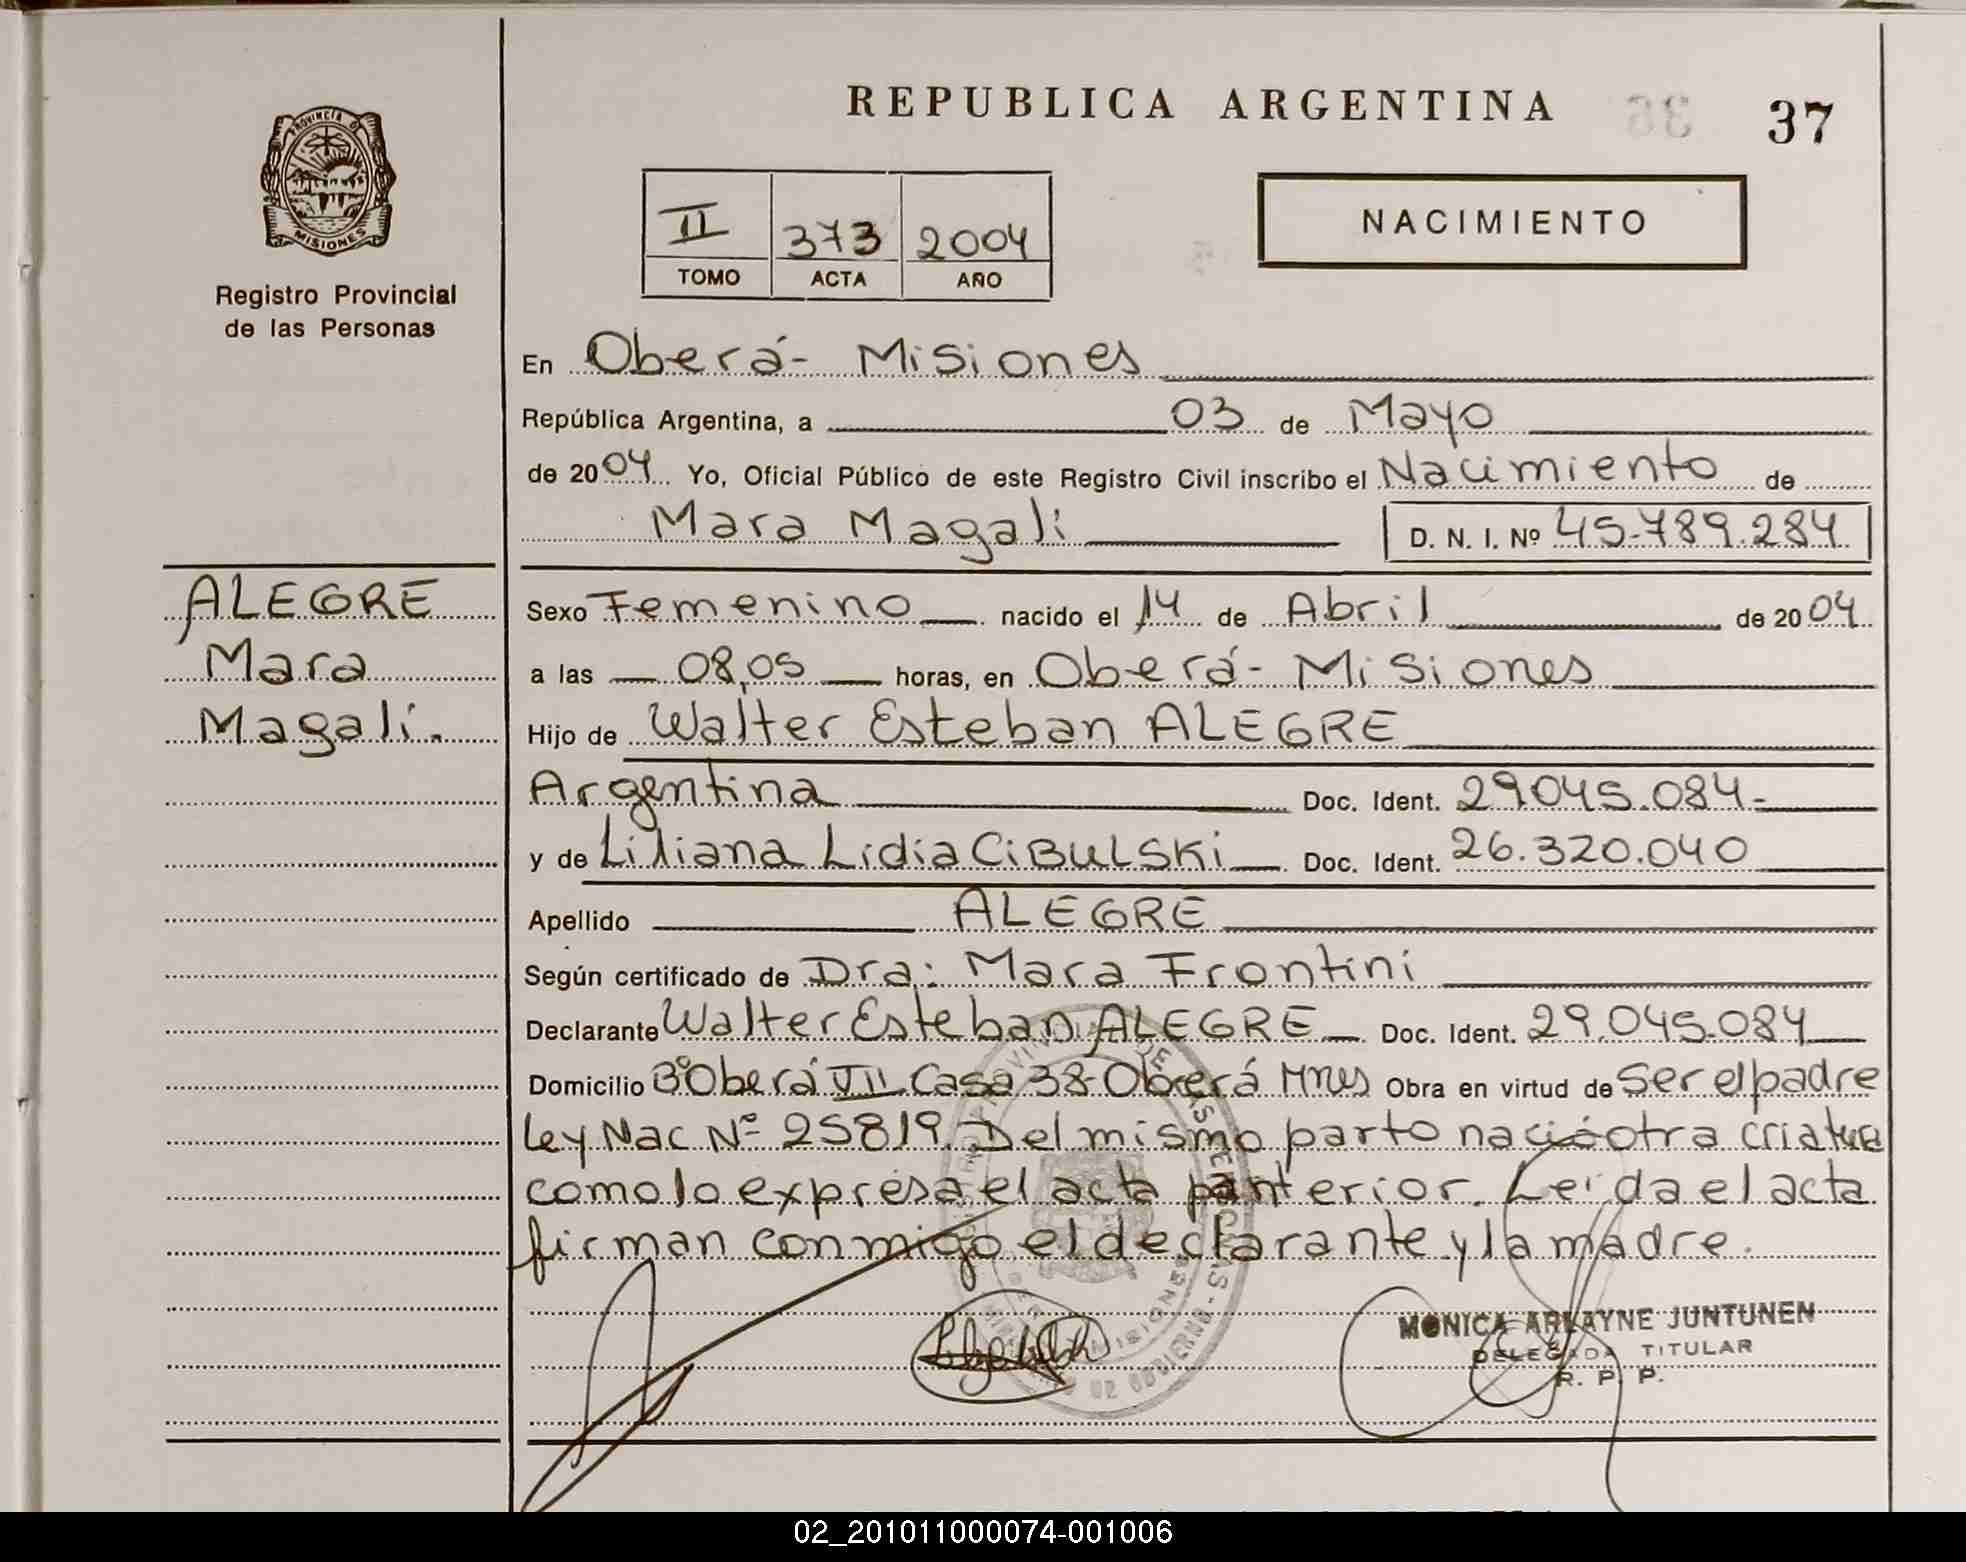 REPUBLICA ARGENTINA
37
PROVINCIA D
MISIONES
Registro Provincial
de las Personas
II 373 2004
TOMO ACTA AÑO
NACIMIENTO
En Oberá- Misiones
República Argentina, a 03 de Mayo
de 2004 Yo, Oficial Público de este Registro Civil inscribo el Nacimiento de
Mara Magali D. N. I. Nº 45.789.284
ALEGRE
Mara
Magali.
Sexo Femenino nacido el 14 de Abril de 2004
a las 08,05 horas, en Oberá- Misiones
Hijo de Walter Esteban ALEGRE
Argentina Doc. Ident. 29.045.084-
y de Liliana Lidia CIBULSKI Doc. Ident. 26.320.040
Apellido ALEGRE
Según certificado de Dra: Mara Frontini
Declarante Walter Esteban ALEGRE Doc. Ident. 29.045.084
Domicilio Bº Oberá VII Casa 38-Oberá Mnes Obra en virtud de Ser el padre
Ley Nac Nº 25819. Del mismo parto nació otra criatura
como lo expresa el acta anterior. Leída el acta
firman conmigo el declarante y la madre.
MONICA ARLAYNE JUNTUNEN
DELEGADA TITULAR
R. P. P.
02_201011000074-001006